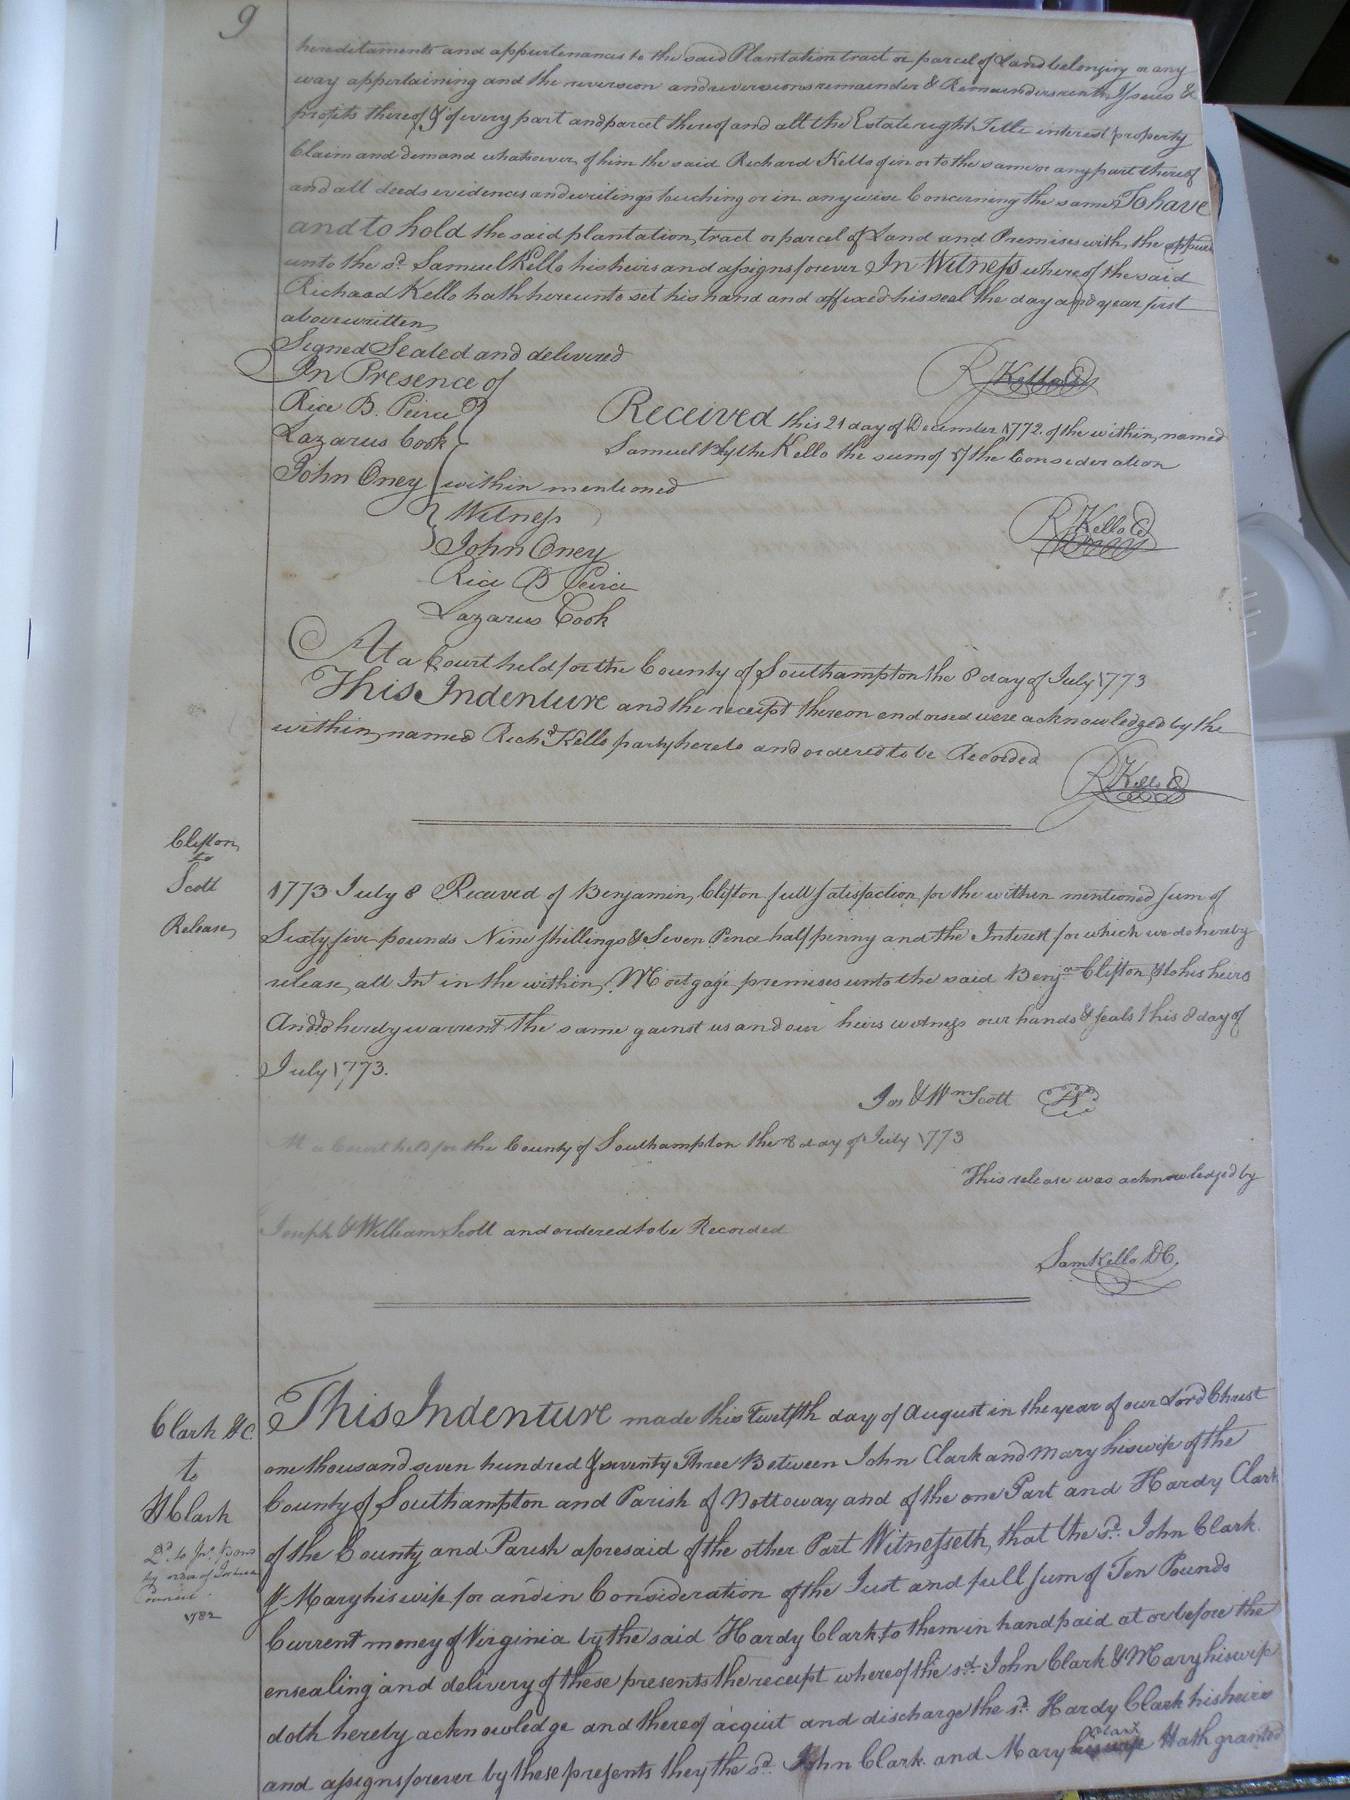 9
hereditaments and appurtenances to the said Plantation tract or parcel of Land belonging or any
way appertaining and the reversion and reversions remainder & Remainders rents Issues &
profits thereof & of every part and parcel thereof and all the Estate right Title interest property
Claim and demand whatsoever of him the said Richard Kello of in or to the same or any part thereof
and all deeds evidences and writings touching or in any wise Concerning the same To have
and to hold the said plantation, tract or parcel of Land and Premises with the appurs
unto the sd. Samuel Kello his heirs and assigns forever In Witness whereof the said
Richard Kello hath hereunto set his hand and affixed his seal the day and year first
above written
Signed Sealed and delivered
In Presence of
R Kello
Rice B. Peirce
Lazarus Cook
John Oney
Received this 21 day of December 1772 of the within named
Samuel Blythe Kello the sum of the Consideration
within mentioned
Witness
John Oney
Rice B Peirce
Lazarus Cook
R Kello
At a Court held for the County of Southampton the 8 day of July 1773
This Indenture and the receipt thereon endorsed were acknowledged by the
within named Richd Kello party hereto and ordered to be Recorded
R Kello
Clifton
to
Scott
Release
1773 July 8 Received of Benjamin Clifton full satisfaction for the within mentioned sum of
Sixty five pounds Nine shillings & Seven Pence half penny and the Interest for which we do hereby
release all Int in the within Mortgage premises unto the said Benja Clifton & to his heirs
And do hereby warrent the same gainst us and our heirs witness our hands & seals this 8 day of
July 1773.
Jos & Wm Scott
At a Court held for the County of Southampton the 8 day of July 1773
This release was acknowledged by
Joseph & William Scott and ordered to be Recorded
Sam Kello DC.
Clark &C.
to
H Clark
Dd. to Jno.
by order of
1782
This Indenture made this Twelfth day of August in the year of our Lord Christ
one thousand seven hundred & seventy Three Between John Clark and Mary his wife of the
County of Southampton and Parish of Nottoway and of the one Part and Hardy Clark
of the County and Parish aforesaid of the other Part Witnesseth, that the sd. John Clark
& Mary his wife for and in Consideration of the Just and full sum of Ten Pounds
Current money of Virginia by the said Hardy Clark to them in hand paid at or before the
ensealing and delivery of these presents the receipt whereof the sd. John Clark & Mary his wife
doth hereby acknowledge and thereof acquit and discharge the sd. Hardy Clark his heirs
and assigns forever by these presents they the sd. John Clark and Mary Clark Hath granted